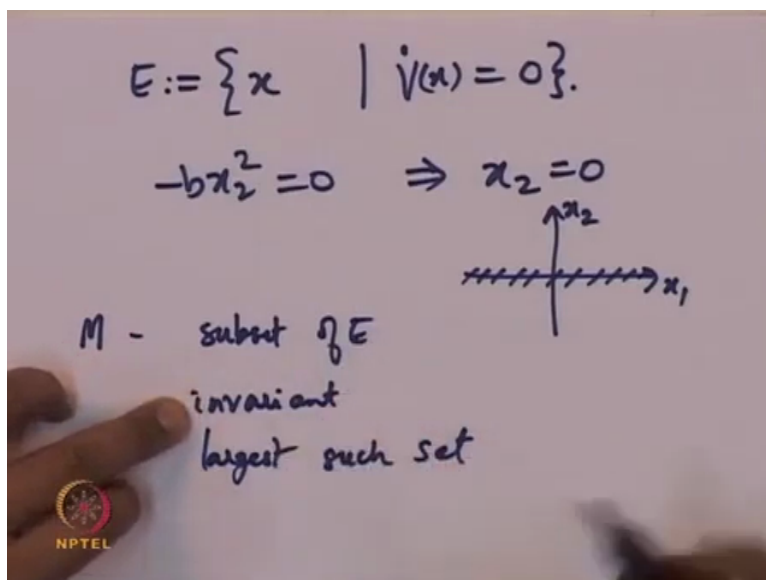 E := { x | V̇(x) = 0 }.
-bx₂² = 0 ⇒ x₂ = 0
x₂
x₁
M - subset of E
invariant
largest such set
NPTEL